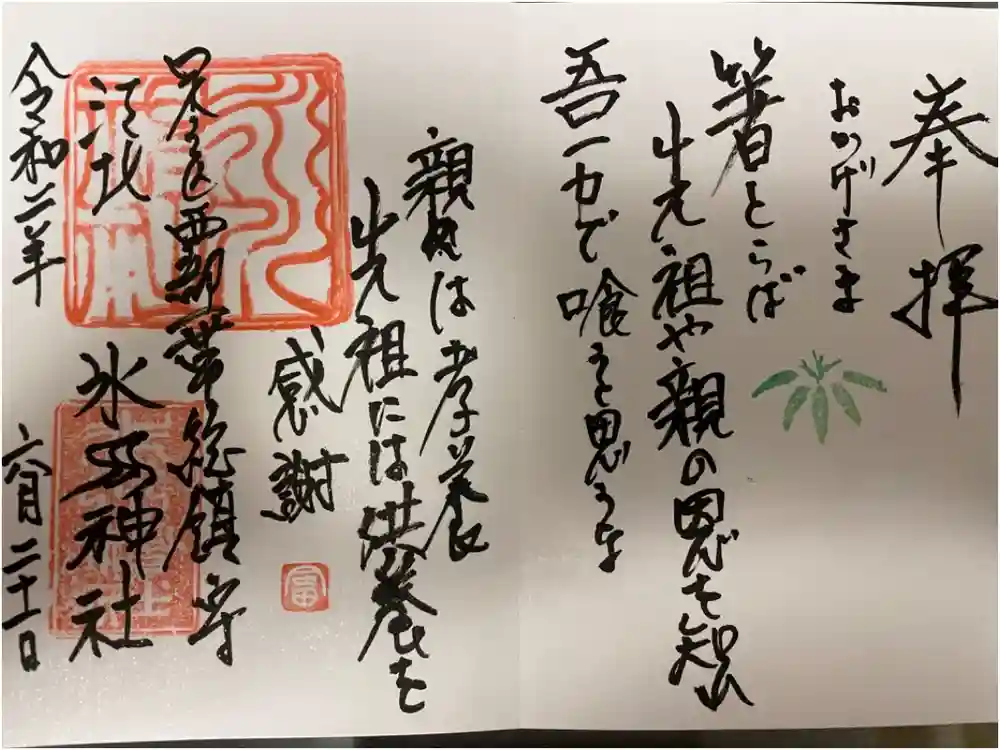 奉拝
おかげさま
箸とらば
先祖や親の恩を知れ
吾一力で喰うと思うな
親には孝養
先祖には供養を
感謝
総鎮守
江北
氷川神社
令和二年
六月二十一日